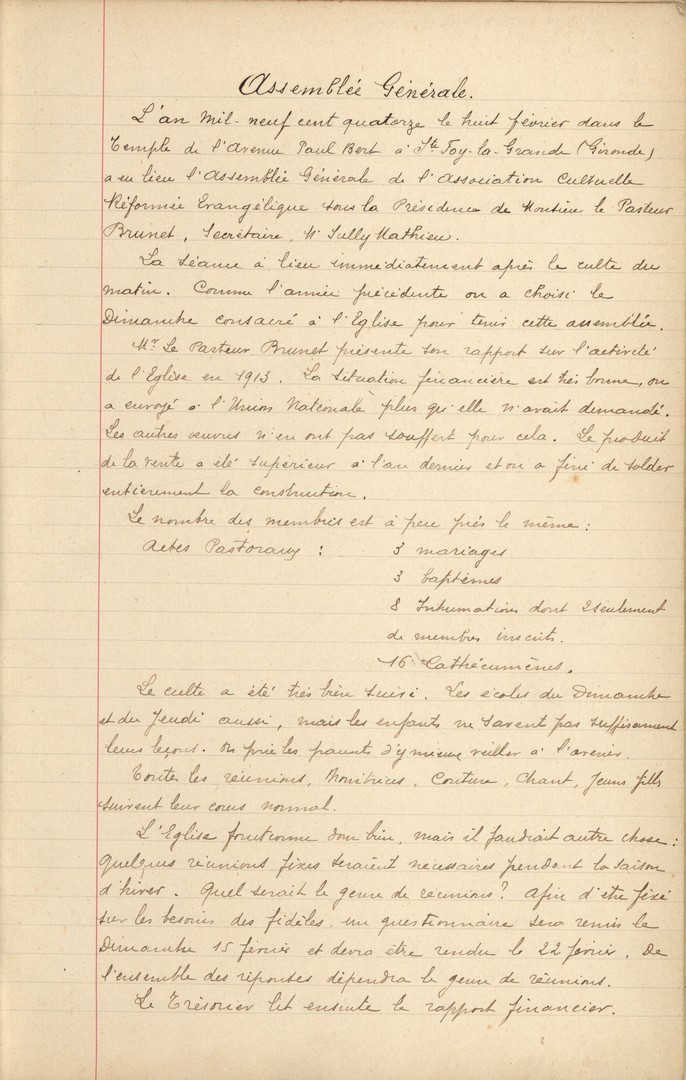 Assemblée Générale.
L'an mil-neuf cent quatorze le huit février dans le
Temple de l'Avenue Paul Bert à Ste Foy-la-Grande (Gironde)
a eu lieu l'Assemblée Générale de l'Association Cultuelle
Réformée Evangélique sous la Présidence de Monsieur le Pasteur
Brunet, Secrétaire, Mr Sully Mathieu.
La séance à lieu immédiatement après le culte du
matin. Comme l'année précédente on a choisi le
Dimanche consacré à l'Eglise pour tenir cette assemblée.
Mr Le Pasteur Brunet présente son rapport sur l'activité
de l'Eglise en 1913. La situation financière est très bonne, on
a envoyé à l'Union Nationale plus qu'elle n'avait demandé.
Les autres œuvres n'en ont pas souffert pour cela. Le produit
de la vente a été supérieur à l'an dernier et on a fini de solder
entièrement la construction.
Le nombre des membres est à peu près le même :
Actes Pastoraux : 3 mariages
3 baptêmes
8 Inhumations dont 2 seulement
de membres inscrits.
16 Cathécumènes.
Le culte a été très bien suivi. Les écoles du Dimanche
et du Jeudi aussi, mais les enfants ne savent pas suffisament
leurs leçons. On prie les parents d'y mieux veiller à l'avenir.
Toutes les réunions, Monitrices, Couture, Chant, Jeunes filles
suivent leur cours normal.
L'Eglise fonctionne donc bien, mais il faudrait autre chose :
Quelques réunions fixes seraient nécessaires pendant la saison
d'hiver. Quel serait le genre de réunions? Afin d'être fixé
sur les besoins des fidèles, un questionnaire sera remis le
Dimanche 15 février et devra être rendu le 22 février. De
l'ensemble des réponses dépendra le genre de réunions.
Le Trésorier lit ensuite le rapport financier.